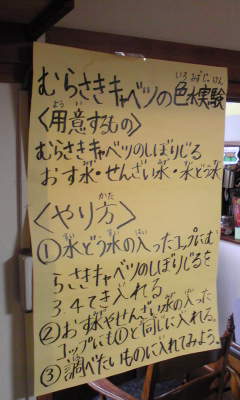 むらさきキャベツの色水実験
いろみずじっけん
〈用意するもの〉
よう い
むらさきキャベツのしぼりじる
おす水・せんざい水・水どう水
〈やり方〉
かた
①水どう水の入ったコップにむ
らさきキャベツのしぼりじるを
3.4てき入れる。
②おす水やせんざい水の入った
コップにも①と同じに入れる。
③調べたいものに入れてみよう。